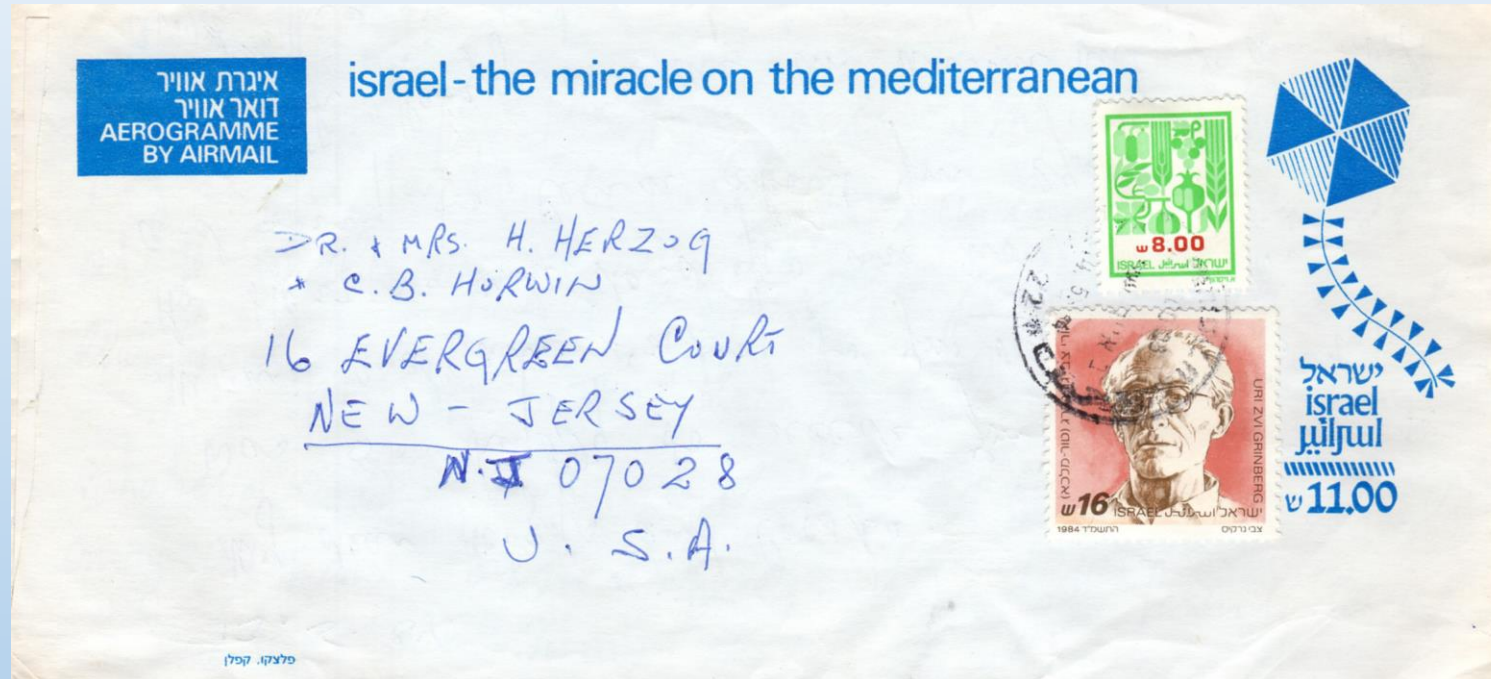 איגרת אוויר
דואר אוויר
AEROGRAMME
BY AIRMAIL
israel - the miracle on the mediterranean
DR. + MRS. H. HERZOG
+ C.B. HORWIN
16 EVERGREEN COURT
NEW - JERSEY
N.J 07028
U. S. A.
ש 8.00
ISRAEL اسرائيل ישראל
URI ZVI GRINBERG
ש 16 ISRAEL اسرائيل ישראל
1984 התשמ"ד
צבי נרקיס
ישראל
israel
اسرائيل
ש 11.00
פלצקו, קפלן